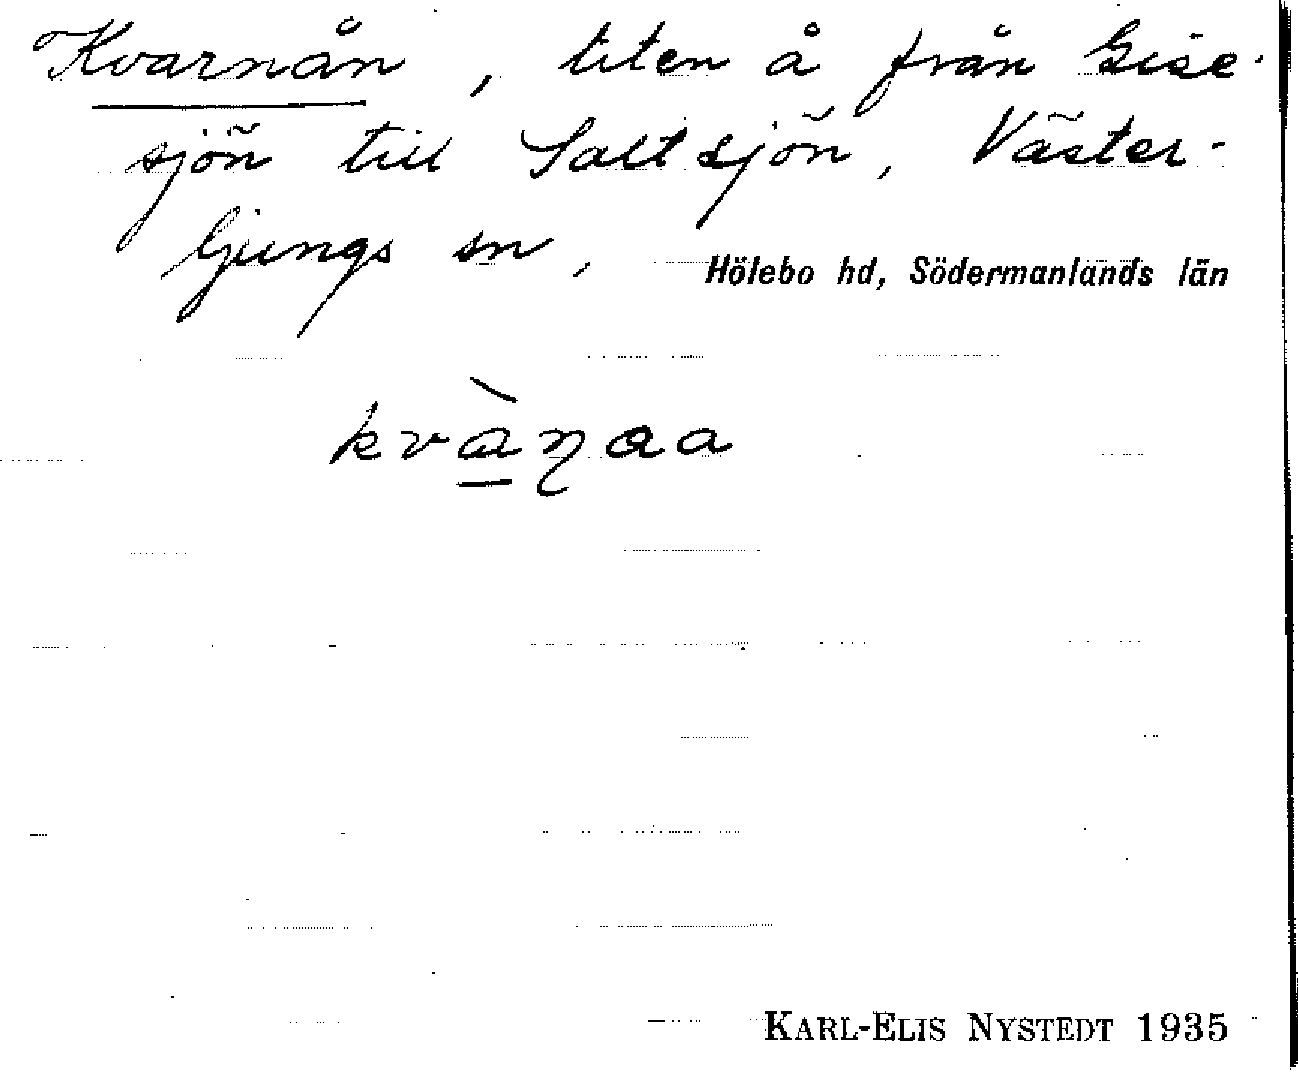 Kvarnån, liten å från Gise-
sjön till Saltsjön, Väster-
ljungs sn, Hölebo hd, Södermanlands län
kvàṇaa
KARL-ELIS NYSTEDT 1935